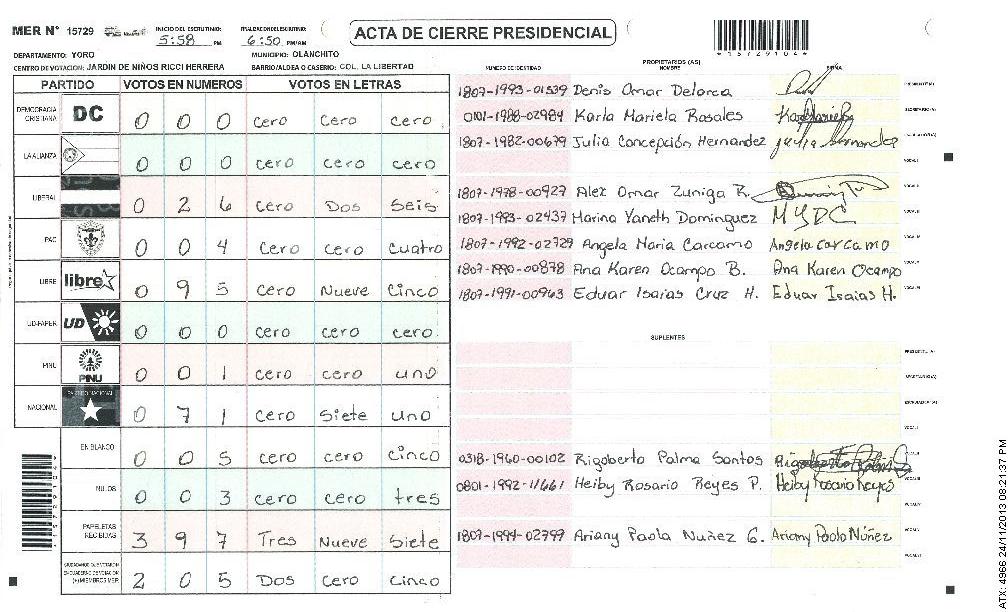 MER N° 15729 INICIO DEL ESCRUTINIO: 5:58 PM FINALIZACION DEL ESCRUTINIO: 6:50 PM/AM
ACTA DE CIERRE PRESIDENCIAL
*15729104*
DEPARTAMENTO: YORO MUNICIPIO: OLANCHITO
CENTRO DE VOTACION: JARDIN DE NIÑOS RICCI HERRERA BARRIO/ALDEA O CASERIO: COL. LA LIBERTAD
PARTIDO VOTOS EN NUMEROS VOTOS EN LETRAS
DEMOCRACIA CRISTIANA DC 0 0 0 cero cero cero
LA ALIANZA 0 0 0 cero cero cero
LIBERAL 0 2 6 cero Dos Seis
PAC 0 0 4 cero cero cuatro
LIBRE libre 0 9 5 cero Nueve Cinco
UD-FAPER UD 0 0 0 cero cero cero
PINU PINU 0 0 1 cero cero uno
NACIONAL PARTIDO NACIONAL 0 7 1 cero Siete uno
EN BLANCO 0 0 5 cero cero cinco
NULOS 0 0 3 cero cero tres
PAPELETAS RECIBIDAS 3 9 7 Tres Nueve Siete
CIUDADANOS QUE VOTARON EN CUADERNO DE VOTACION (+) MIEMBROS MER 2 0 5 Dos cero cinco
PROPIETARIOS (AS)
NUMERO DE IDENTIDAD NOMBRE FIRMA
1807-1993-01539 Denis Omar Delarca PRESIDENTE(A)
0101-1988-02984 Karla Mariela Rosales SECRETARIO(A)
1807-1982-00679 Julia Concepción Hernandez Julia Hernandez ESCRUTADOR(A)
VOCAL I
1807-1978-00927 Alex Omar Zuniga R. VOCAL II
1807-1993-02437 Marina Yaneth Dominguez MYDC VOCAL III
1807-1992-02729 Angela Maria Carcamo Angela Carcamo VOCAL IV
1807-1990-00878 Ana Karen Ocampo B. Ana Karen Ocampo VOCAL V
1807-1991-00963 Eduar Isaias Cruz H. Eduar Isaias H. VOCAL VI
SUPLENTES
PRESIDENTE(A)
SECRETARIO(A)
ESCRUTADOR(A)
VOCAL I
0318-1960-00102 Rigoberto Palma Santos VOCAL II
0801-1992-11661 Heiby Rosario Reyes P. Heiby Rosario Reyes VOCAL III
VOCAL IV
1807-1994-02799 Ariany Paola Nuñez G. Ariany Paola Núñez VOCAL V
VOCAL VI
ATX: 4966 24/11/2013 08:21:37 PM